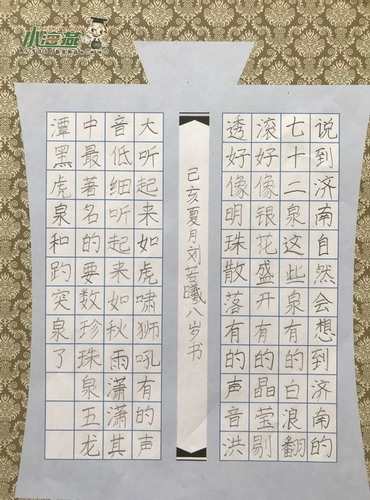 小海燕
说到济南自然会想到济南的
七十二泉这些泉有的白浪翻
滚好像银花盛开有的晶莹剔
透好像明珠散落有的声音洪
己亥夏月刘若曦八岁书
大听起来如虎啸狮吼有的声
音低细听起来如秋雨潇潇其
中最著名的要数珍珠泉五龙
潭黑虎泉和趵突泉了